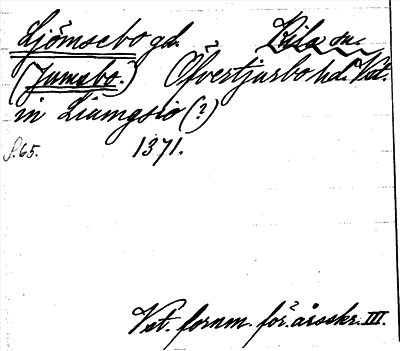 Ljömsebo gd. Lila sn.
(Jumsbo.) Öfvertjurbo hd. Vst.
in Liumgsio (?)
S.65. 1371.
Vst. fornm. för. årsskr. III.